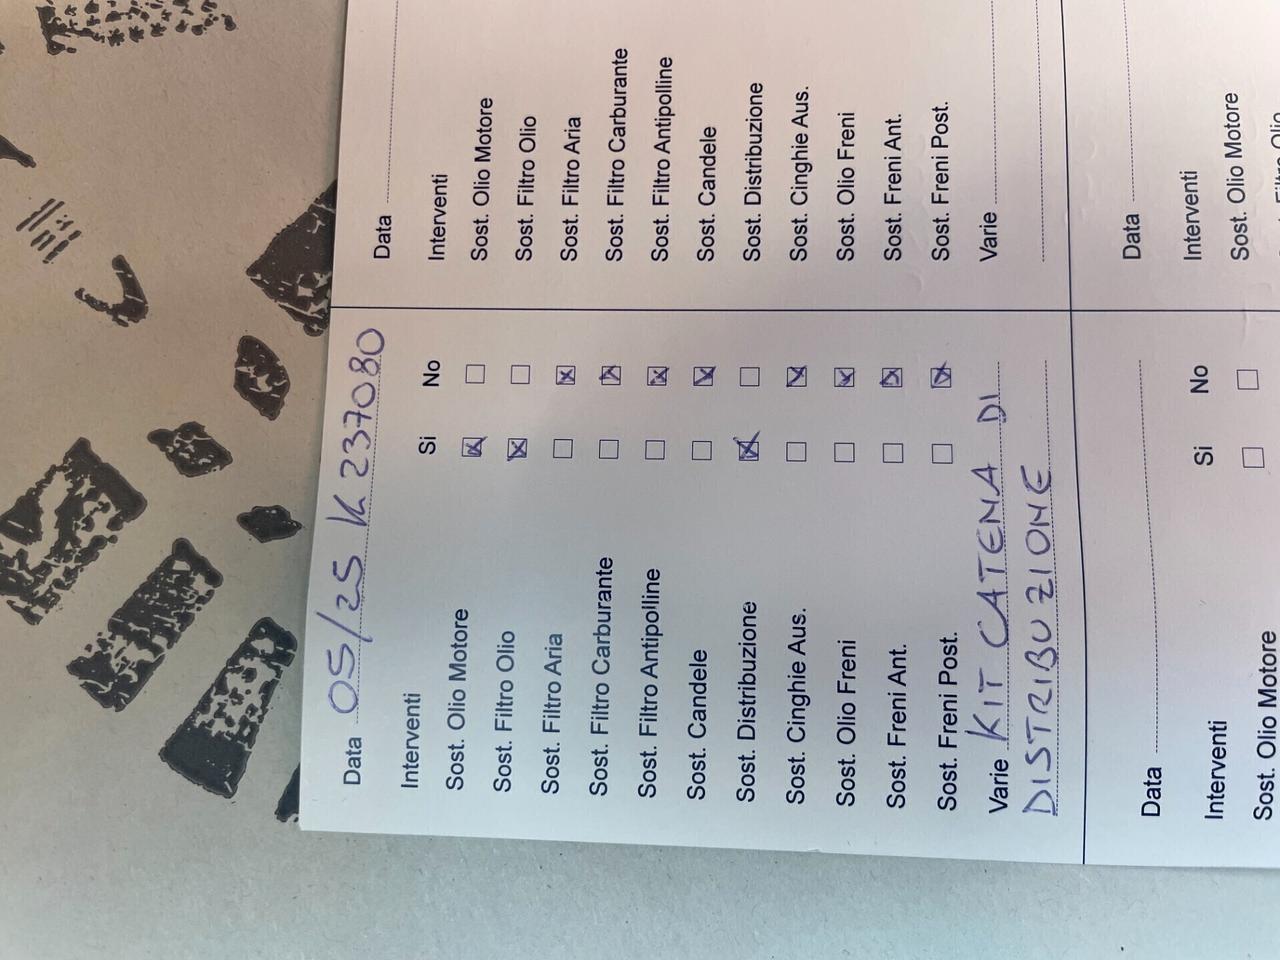 Data 05/25 K 237080
Interventi Si No
Sost. Olio Motore ☒ ☐
Sost. Filtro Olio ☒ ☐
Sost. Filtro Aria ☐ ☒
Sost. Filtro Carburante ☐ ☒
Sost. Filtro Antipolline ☐ ☒
Sost. Candele ☐ ☒
Sost. Distribuzione ☒ ☐
Sost. Cinghie Aus. ☐ ☒
Sost. Olio Freni ☐ ☒
Sost. Freni Ant. ☐ ☒
Sost. Freni Post. ☐ ☒
Varie KIT CATENA DI
DISTRIBUZIONE
Data
Interventi
Sost. Olio Motore
Sost. Filtro Olio
Sost. Filtro Aria
Sost. Filtro Carburante
Sost. Filtro Antipolline
Sost. Candele
Sost. Distribuzione
Sost. Cinghie Aus.
Sost. Olio Freni
Sost. Freni Ant.
Sost. Freni Post.
Varie
Data
Interventi Si No
Sost. Olio Motore ☐ ☐
Data
Interventi
Sost. Olio Motore
Filtro Olio